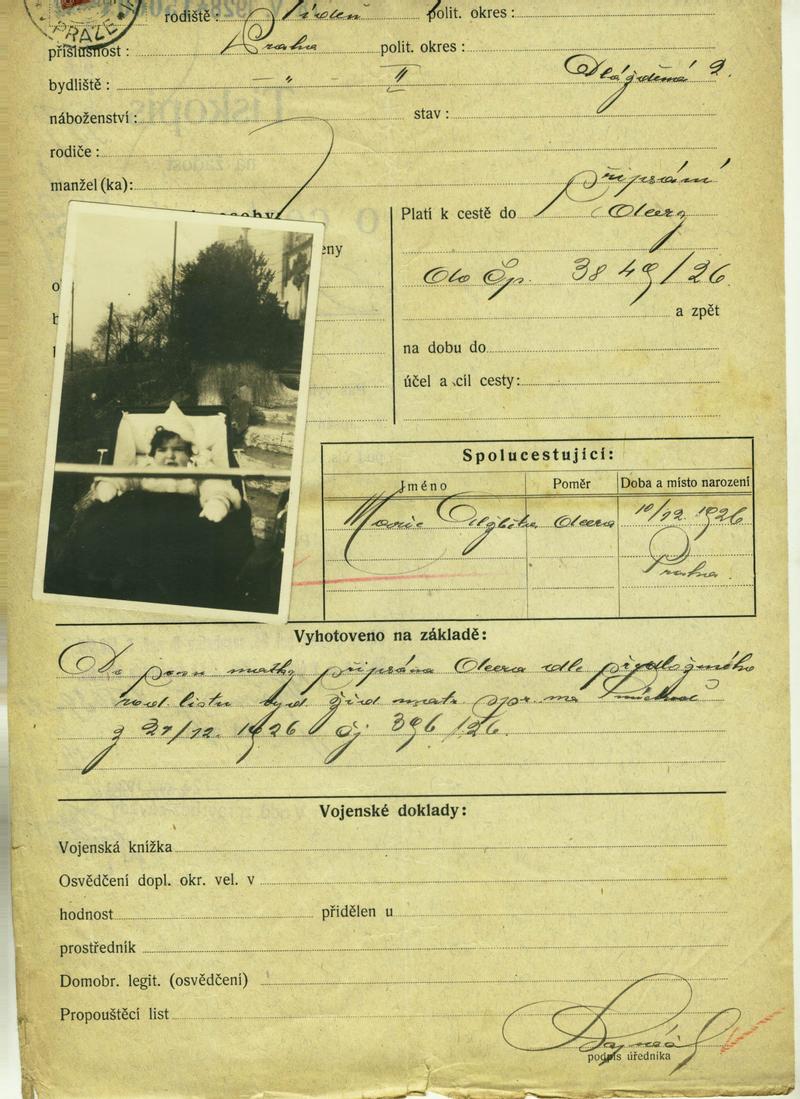 PRAZE
rodiště: Vídeň polit. okres:
příslušnost: Praha polit. okres:
bydliště: — „ — II Dlážděná 2.
náboženství: stav:
rodiče:
manžel(ka):
připsání
Platí k cestě do dcery
eny
do čp. 3849/26
a zpět
na dobu do
účel a cíl cesty:
Spolucestující:
Jméno Poměr Doba a místo narození
Marie Alžběta dcera 10/12 1926
Praha.
Vyhotoveno na základě:
Do pasu matky připsána dcera dle předloženého
rod. listu vyd. žid. matr. spr. na
z 21/12. 1926 čj 396/26.
Vojenské doklady:
Vojenská knížka
Osvědčení dopl. okr. vel. v
hodnost přidělen u
prostředník
Domobr. legit. (osvědčení)
Propouštěcí list
podpis úředníka